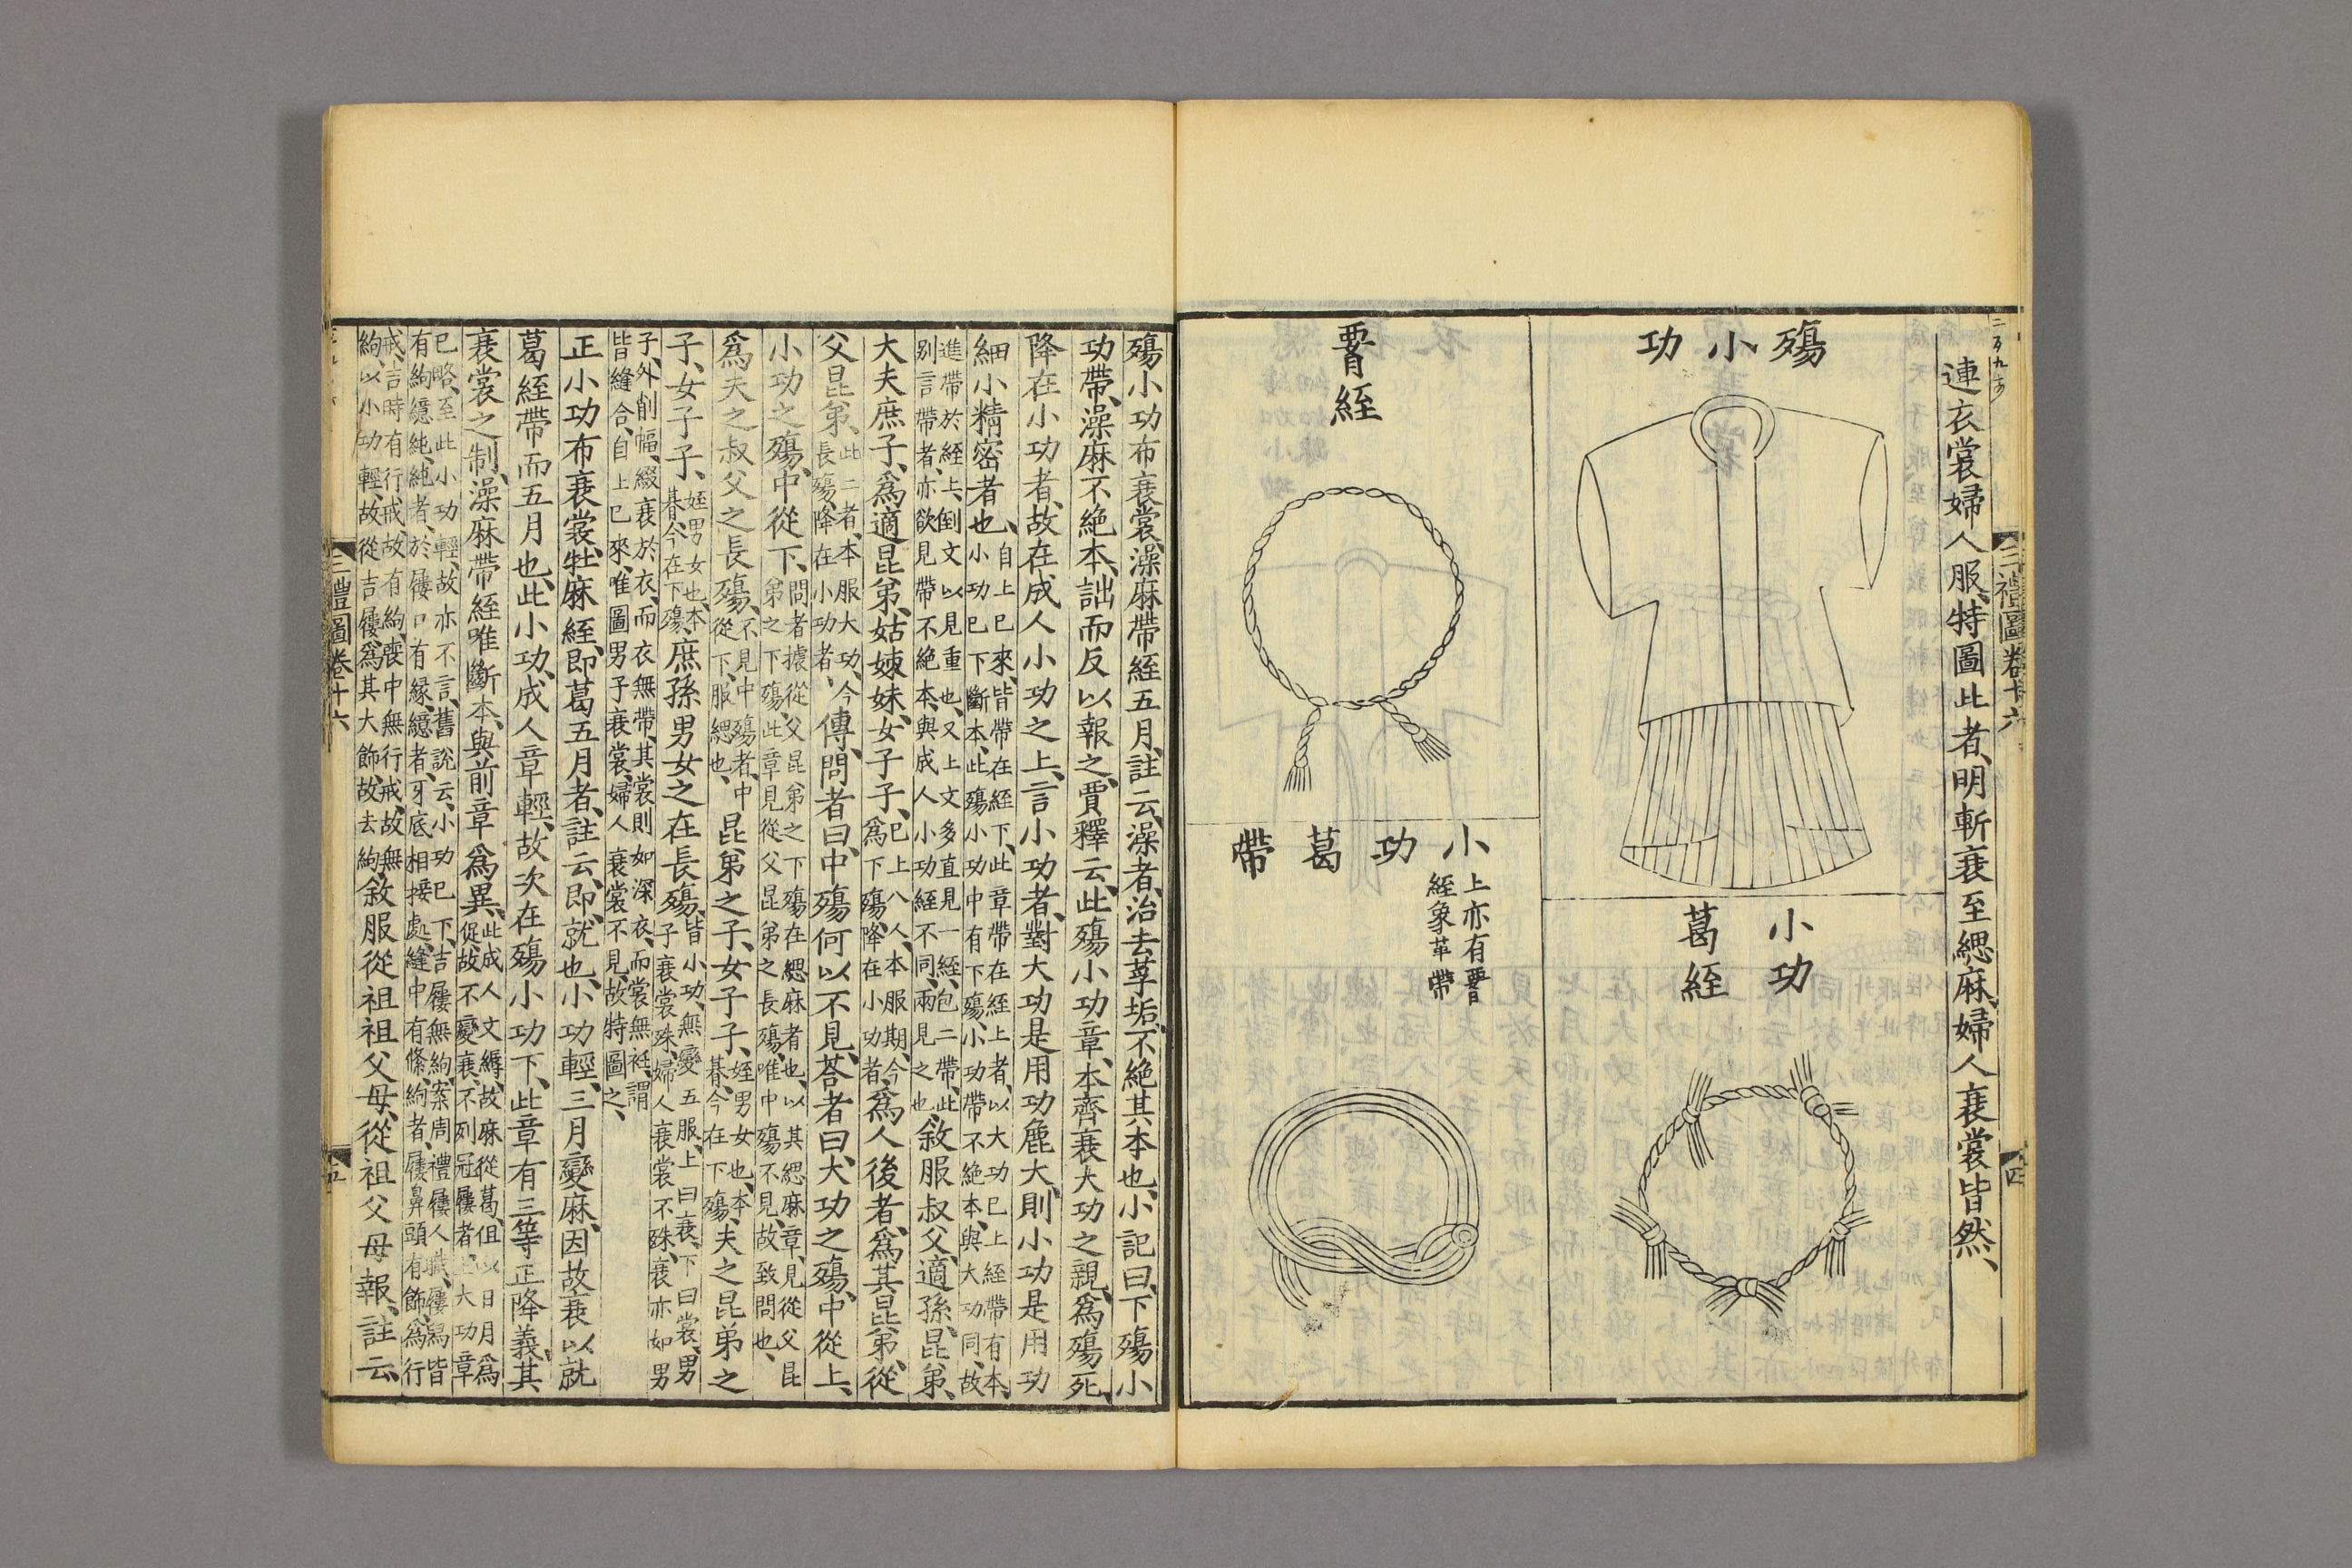 三禮圖卷十六
四
連衣裳婦人服特圖此者明斬衰至緦麻婦人衰裳皆然
殤小功
小功
葛絰
要絰
小功葛帶
上亦有要
絰象革帶
殤小功布衰裳澡麻帶絰五月註云澡者治去莩垢不絶其本也小記曰下殤小
功帶澡麻不絶本詘而反以報之賈釋云此殤小功章本齊衰大功之親爲殤死
降在小功者故在成人小功之上言小功者對大功是用功麁大則小功是用功
細小精密者也自上已來皆帶在絰下此章帶在絰上者以大功已上絰帶有本
小功已下斷本此殤小功中有下殤小功帶不絶本與大功同故
進帶於絰上倒文以見重也又上文多直見一絰包二帶此
別言帶者亦欲見帶不絶本與成人小功絰不同兩見之也敘服叔父適孫昆弟
大夫庶子爲適昆弟姑姊妹女子子已上八人本服期今
爲下殤降在小功者爲人後者爲其昆弟從
父昆弟此二者本服大功今
長殤降在小功者傳問者曰中殤何以不見荅者曰大功之殤中從上
小功之殤中從下問者據從父昆弟之下殤在緦麻者也以其緦麻章見從父昆
弟之下殤此章見從父昆弟之長殤唯中殤不見故致問也
爲夫之叔父之長殤不見中殤者中
從下服緦也昆弟之子女子子姪男女也本
朞今在下殤夫之昆弟之
子女子子姪男女也本
朞今在下殤庶孫男女之在長殤皆小功無變五服上曰衰下曰裳男
子衰裳殊婦人衰裳不殊衰亦如男
子外削幅綴衰於衣而衣無帶其裳則如深衣而裳無衽謂
皆縫合自上已來唯圖男子衰裳婦人衰裳不見故特圖之
正小功布衰裳牡麻絰即葛五月者註云即就也小功輕三月變麻因故衰以就
葛絰帶而五月也此小功成人章輕故次在殤小功下此章有三等正降義其
衰裳之制澡麻帶絰唯斷本與前章爲異此成人文縟故麻從葛但以日月爲
促故不變衰不列冠屨者上大功章
已略至此小功輕故亦不言舊說云小功已下吉屨無絇案周禮屨人職屨舄皆
有絇繶純純者於屨口有緣繶者牙底相接處縫中有絛絇者屨鼻頭有飾爲行
戒吉時有行戒故有絇喪中無行戒故無
絇以小功輕故從吉屨爲其大飾故去絇敘服從祖祖父母從祖父母報註云
三禮圖卷十六
五